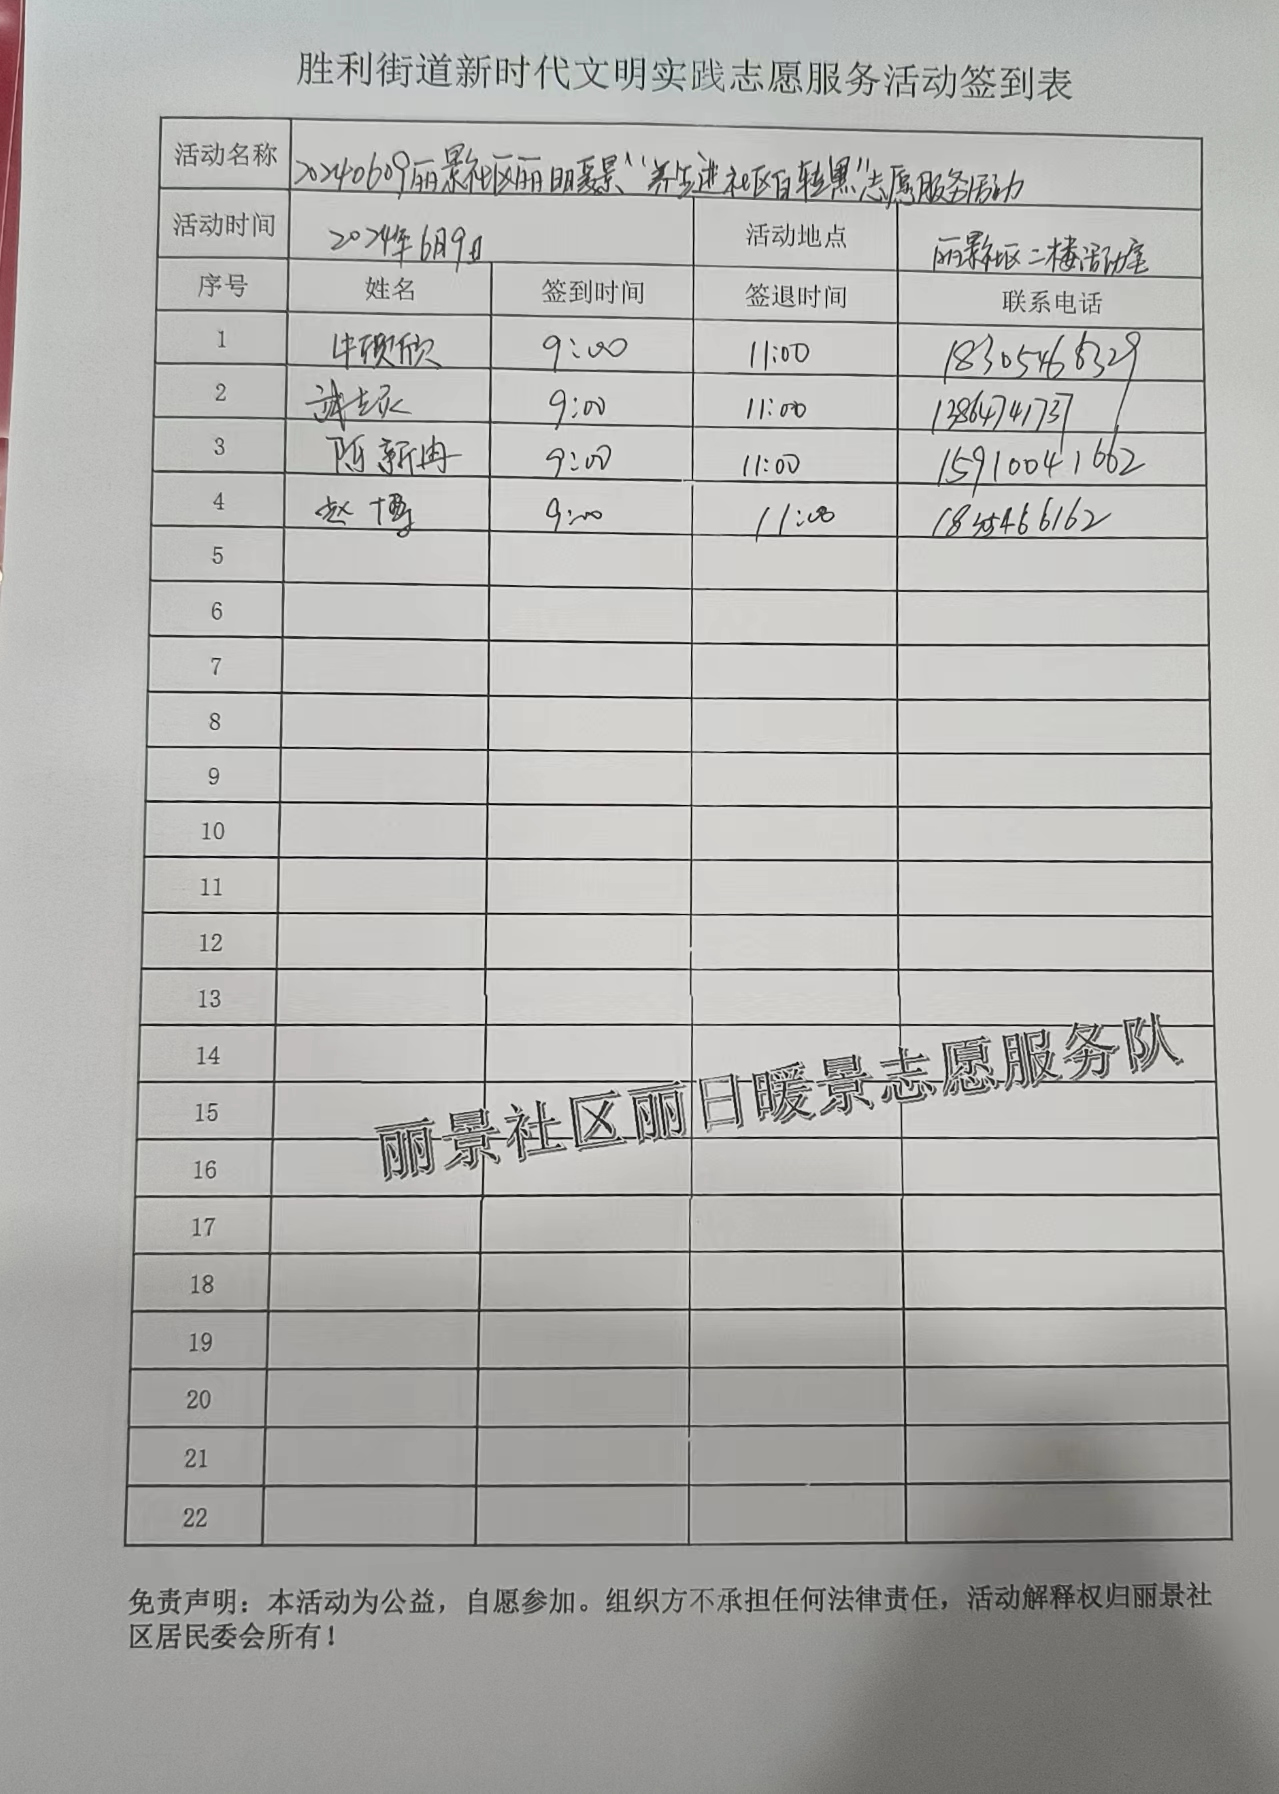 胜利街道新时代文明实践志愿服务活动签到表
活动名称 20240609丽景社区丽日暖景“养生进社区白转黑”志愿服务活动
活动时间 2024年6月9日 活动地点 丽景社区二楼活动室
序号 姓名 签到时间 签退时间 联系电话
1 9:00 11:00 18305466329
2 9:00 11:00 13864741737
3 陈新冉 9:00 11:00 15910041662
4 赵博 9:00 11:00
5
6
7
8
9
10
11
12
13
14
15
16
17
18
19
20
21
22
丽景社区丽日暖景志愿服务队
免责声明：本活动为公益，自愿参加。组织方不承担任何法律责任，活动解释权归丽景社
区居民委会所有！